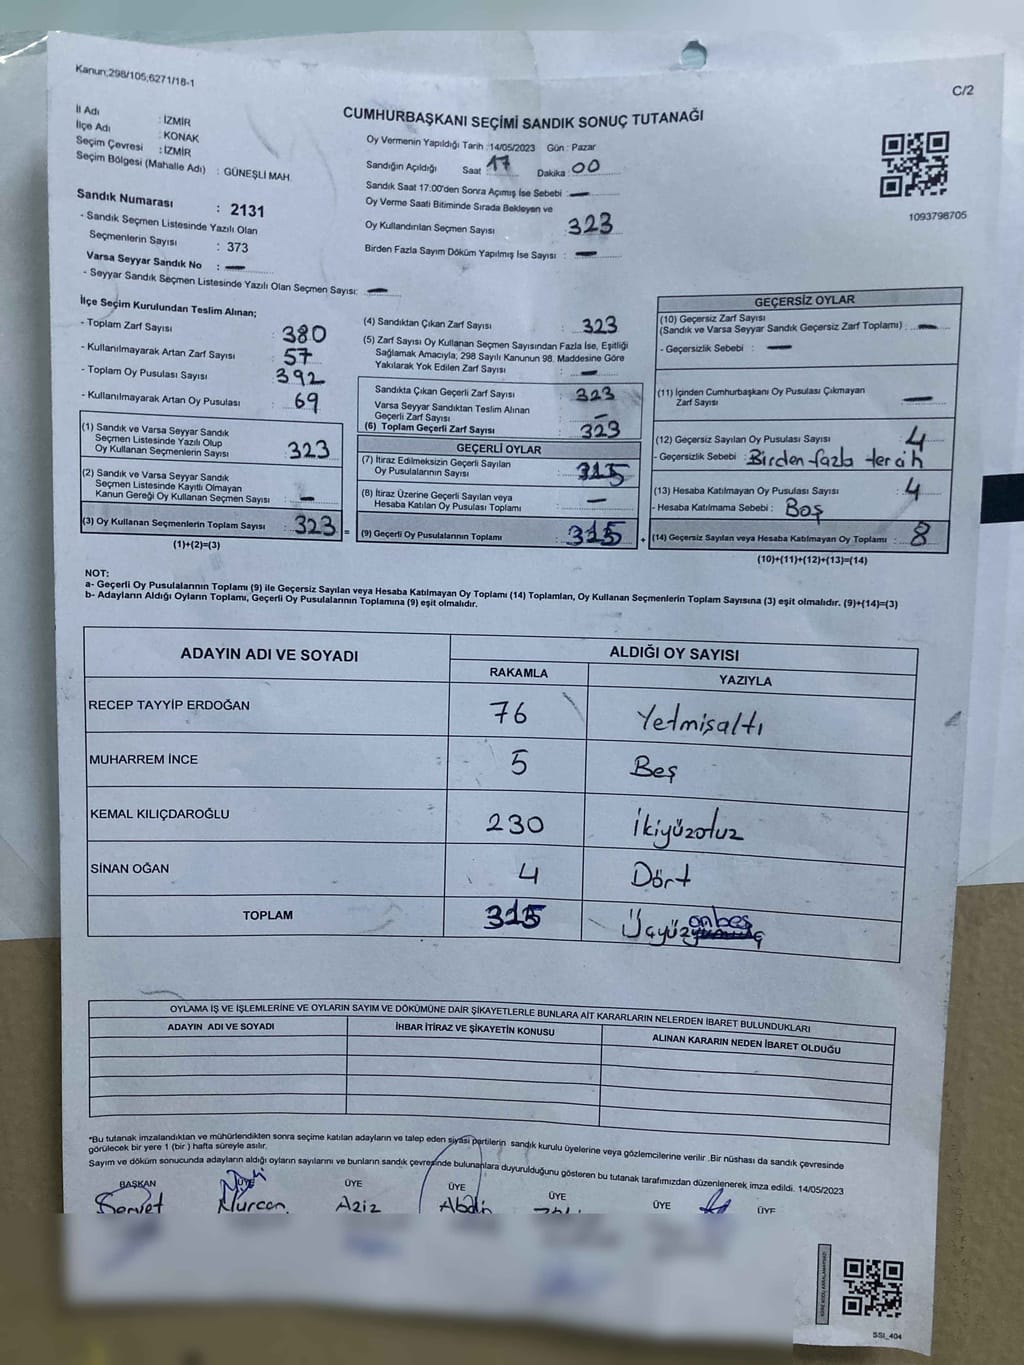 Kanun;298/105;6271/18-1
C/2
CUMHURBAŞKANI SEÇİMİ SANDIK SONUÇ TUTANAĞI
İl Adı : İZMİR
İlçe Adı : KONAK
Seçim Çevresi : İZMİR
Seçim Bölgesi (Mahalle Adı) : GÜNEŞLİ MAH.
Sandık Numarası : 2131
- Sandık Seçmen Listesinde Yazılı Olan
Seçmenlerin Sayısı : 373
Varsa Seyyar Sandık No : —
- Seyyar Sandık Seçmen Listesinde Yazılı Olan Seçmen Sayısı: —
Oy Vermenin Yapıldığı Tarih :14/05/2023 Gün : Pazar
Sandığın Açıldığı Saat : 17 Dakika : 00
Sandık Saat 17:00'den Sonra Açımış İse Sebebi : —
Oy Verme Saati Bitiminde Sırada Bekleyen ve
Oy Kullandırılan Seçmen Sayısı : 323
Birden Fazla Sayım Döküm Yapılmış İse Sayısı : —
1093798705
İlçe Seçim Kurulundan Teslim Alınan;
- Toplam Zarf Sayısı : 380
- Kullanılmayarak Artan Zarf Sayısı : 57
- Toplam Oy Pusulası Sayısı : 392
- Kullanılmayarak Artan Oy Pusulası : 69
(1) Sandık ve Varsa Seyyar Sandık
Seçmen Listesinde Yazılı Olup
Oy Kullanan Seçmenlerin Sayısı : 323
(2) Sandık ve Varsa Seyyar Sandık
Seçmen Listesinde Kayıtlı Olmayan
Kanun Gereği Oy Kullanan Seçmen Sayısı : —
(3) Oy Kullanan Seçmenlerin Toplam Sayısı : 323 =
(1)+(2)=(3)
(4) Sandıktan Çıkan Zarf Sayısı : 323
(5) Zarf Sayısı Oy Kullanan Seçmen Sayısından Fazla İse, Eşitliği
Sağlamak Amacıyla; 298 Sayılı Kanunun 98. Maddesine Göre
Yakılarak Yok Edilen Zarf Sayısı : —
Sandıkta Çıkan Geçerli Zarf Sayısı : 323
Varsa Seyyar Sandıktan Teslim Alınan
Geçerli Zarf Sayısı : —
(6) Toplam Geçerli Zarf Sayısı : 323
GEÇERLİ OYLAR
(7) İtiraz Edilmeksizin Geçerli Sayılan
Oy Pusulalarının Sayısı : 315
(8) İtiraz Üzerine Geçerli Sayılan veya
Hesaba Katılan Oy Pusulası Toplamı : —
(9) Geçerli Oy Pusulalarının Toplamı : 315 +
GEÇERSİZ OYLAR
(10) Geçersiz Zarf Sayısı
(Sandık ve Varsa Seyyar Sandık Geçersiz Zarf Toplamı) : —
- Geçersizlik Sebebi : —
(11) İçinden Cumhurbaşkanı Oy Pusulası Çıkmayan
Zarf Sayısı : —
(12) Geçersiz Sayılan Oy Pusulası Sayısı : 4
- Geçersizlik Sebebi : Birden fazla tercih
(13) Hesaba Katılmayan Oy Pusulası Sayısı : 4
- Hesaba Katılmama Sebebi : Boş
(14) Geçersiz Sayılan veya Hesaba Katılmayan Oy Toplamı : 8
(10)+(11)+(12)+(13)=(14)
NOT:
a- Geçerli Oy Pusulalarının Toplamı (9) ile Geçersiz Sayılan veya Hesaba Katılmayan Oy Toplamı (14) Toplamları, Oy Kullanan Seçmenlerin Toplam Sayısına (3) eşit olmalıdır. (9)+(14)=(3)
b- Adayların Aldığı Oyların Toplamı, Geçerli Oy Pusulalarının Toplamına (9) eşit olmalıdır.
ADAYIN ADI VE SOYADI ALDIĞI OY SAYISI
RAKAMLA YAZIYLA
RECEP TAYYİP ERDOĞAN 76 Yetmişaltı
MUHARREM İNCE 5 Beş
KEMAL KILIÇDAROĞLU 230 İkiyüzotuz
SİNAN OĞAN 4 Dört
TOPLAM 315 Üçyüz onbeş
OYLAMA İŞ VE İŞLEMLERİNE VE OYLARIN SAYIM VE DÖKÜMÜNE DAİR ŞİKAYETLERLE BUNLARA AİT KARARLARIN NELERDEN İBARET BULUNDUKLARI
ADAYIN ADI VE SOYADI İHBAR İTİRAZ VE ŞİKAYETİN KONUSU ALINAN KARARIN NEDEN İBARET OLDUĞU
*Bu tutanak imzalandıktan ve mühürlendikten sonra seçime katılan adayların ve talep eden siyasi partilerin sandık kurulu üyelerine veya gözlemcilerine verilir .Bir nüshası da sandık çevresinde
görülecek bir yere 1 (bir ) hafta süreyle asılır.
Sayım ve döküm sonucunda adayların aldığı oyların sayılarını ve bunların sandık çevresinde bulunanlara duyurulduğunu gösteren bu tutanak tarafımızdan düzenlenerek imza edildi. 14/05/2023
BAŞKAN ÜYE ÜYE ÜYE ÜYE ÜYE ÜYE
Nurcan Aziz
SSI_404